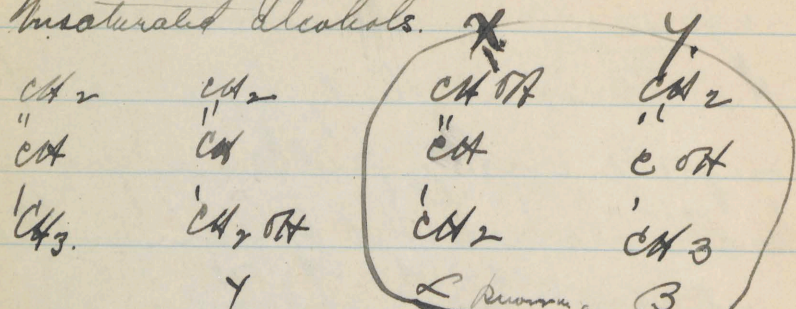 Unsaturated Alcohols. X Y.
CH2 CH2 CHOH CH2
" " " "
CH CH CH C OH
' ' ' '
CH3. CH2 OH CH2 CH3
γ α β